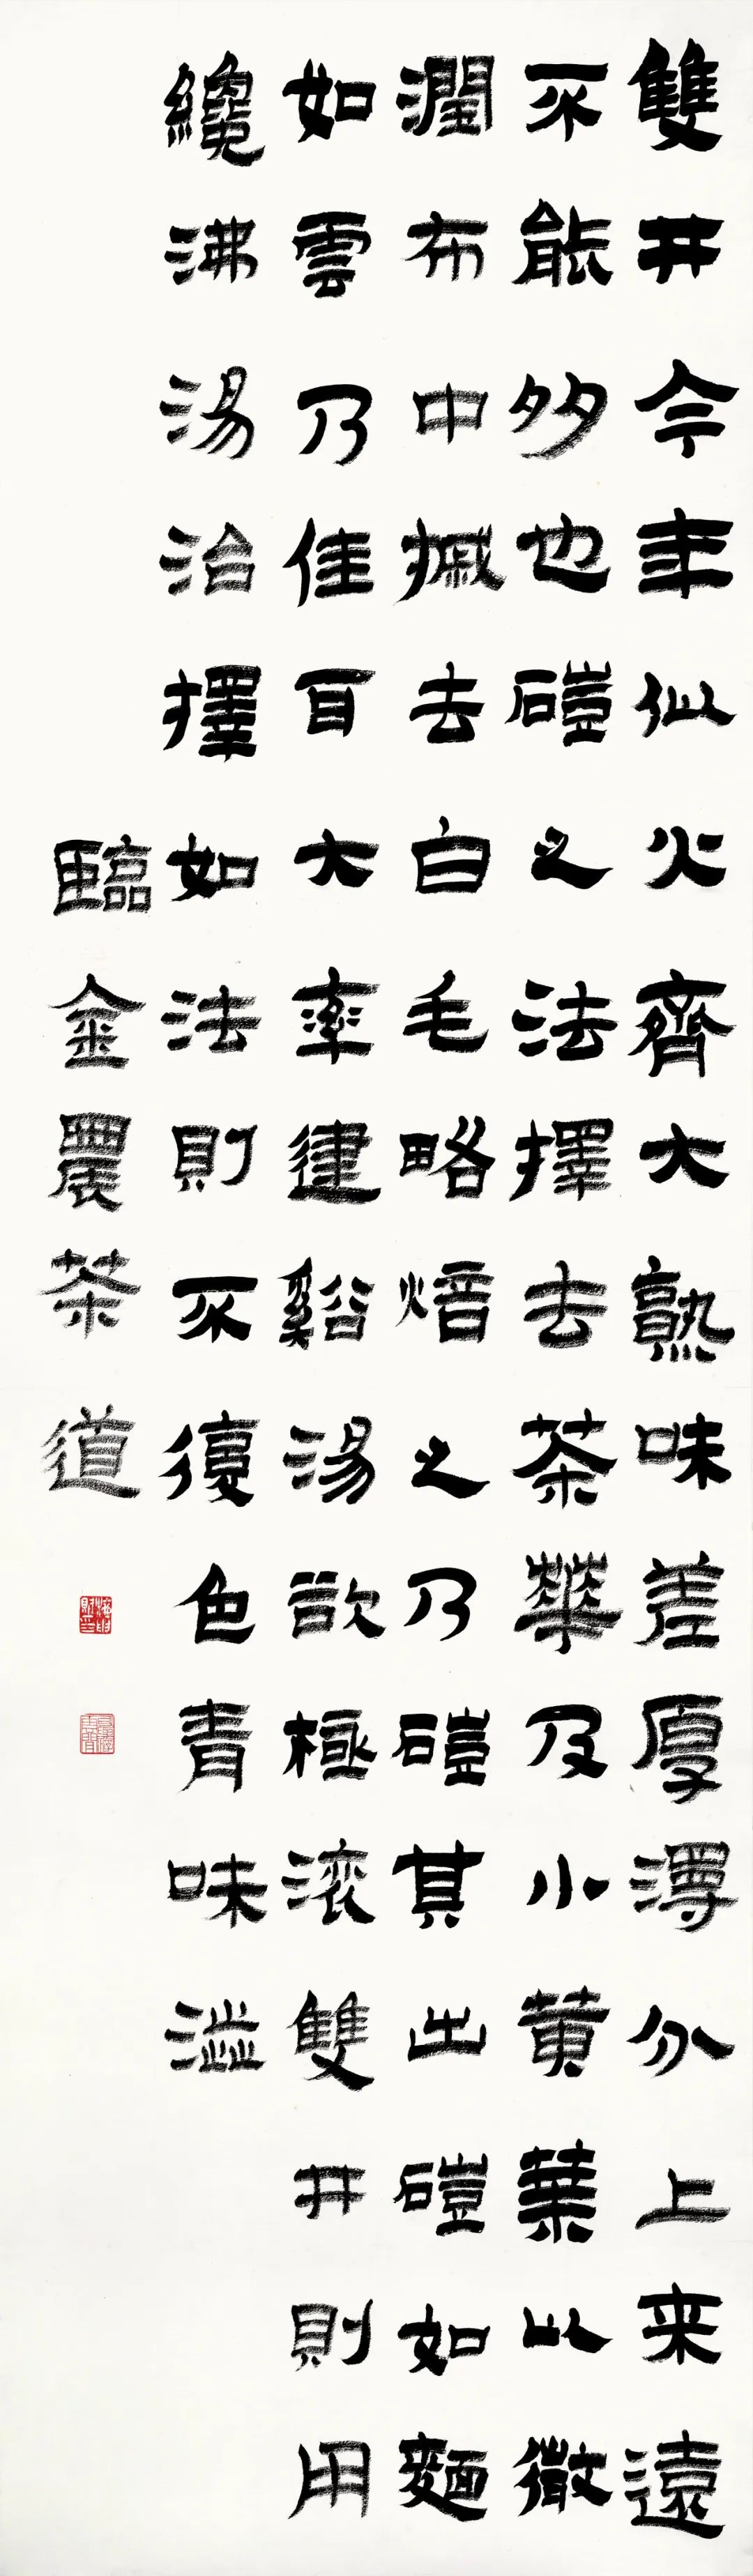 雙井今年似火齊大熟味差厚澤分上来遠
不能多也磑之法擇去茶華及小黄葉以微
潤布中摵去白毛略焙之乃磑其出磑如麵
如雲乃佳耳大率建谿湯欲極滾雙井則用
纔沸湯治擇如法則不復色青味澁
臨金農茶道